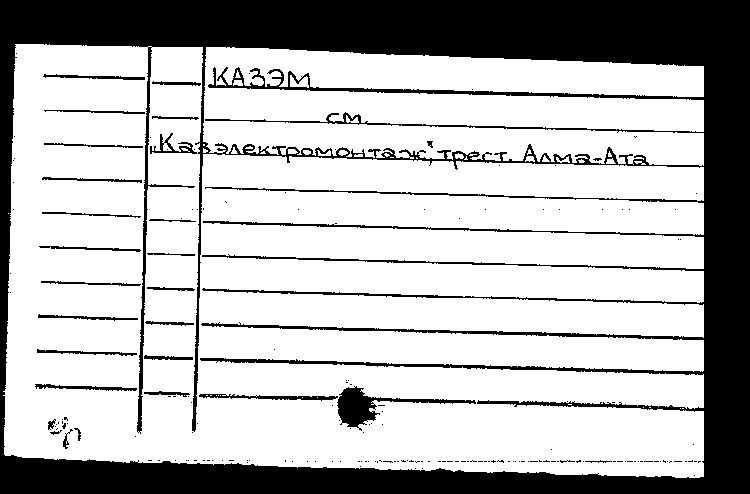 КАЗЭМ
см.
„Казэлектромонтаж", трест. Алма-Ата